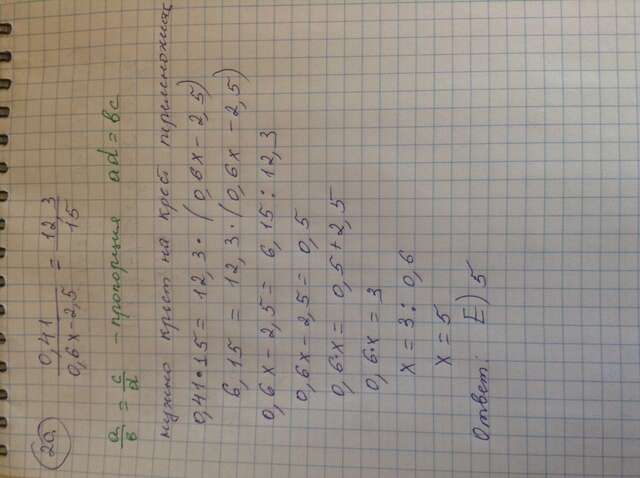 20.
0,41/0,6x-2,5 = 12,3/15
a/в = c/d - пропорция ad = вc
нужно крест на крест перемножить
0,41·15 = 12,3·(0,6x-2,5)
6,15 = 12,3·(0,6x-2,5)
0,6x-2,5 = 6,15:12,3
0,6x-2,5 = 0,5
0,6·x = 0,5+2,5
0,6·x = 3
x = 3:0,6
x = 5
Ответ: E) 5